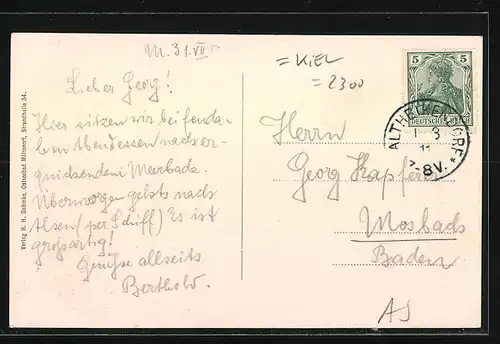 M. 31. VII
= KIEL
= 2300
Lieber Georg!
Hier sitzen wir bei fenda-
lem Abendessen nach er-
quickendem Meerbade.
Übermorgen gehts nach
Alsen (per Schiff) Es ist
großartig!
Grüße allseits
Berthold.
5 5
DEUTSCHES REICH
ALTHEIKENDORF *
1 8
11
7-8V.
Herrn
Georg Kapferer
Mosbach
Baden
AS
Verlag H. H. Dohmke, Ostseebad Möltenort, Strandvilla 34.